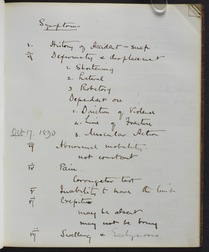 Symptoms
I. History of Accident - snap
II Deformity & displacement
1. Shortening
2. Lateral
3 Rotatory
Dependent on
1. Direction of Violence
2. Line of Fracture
Oct 17. 1890
3. Muscular Action
III Abnormal mobility
not constant
IV Pain
V Inability to move the limb
VI Crepitus
may be absent
may not be bony
VII Swelling & Ecchymosis